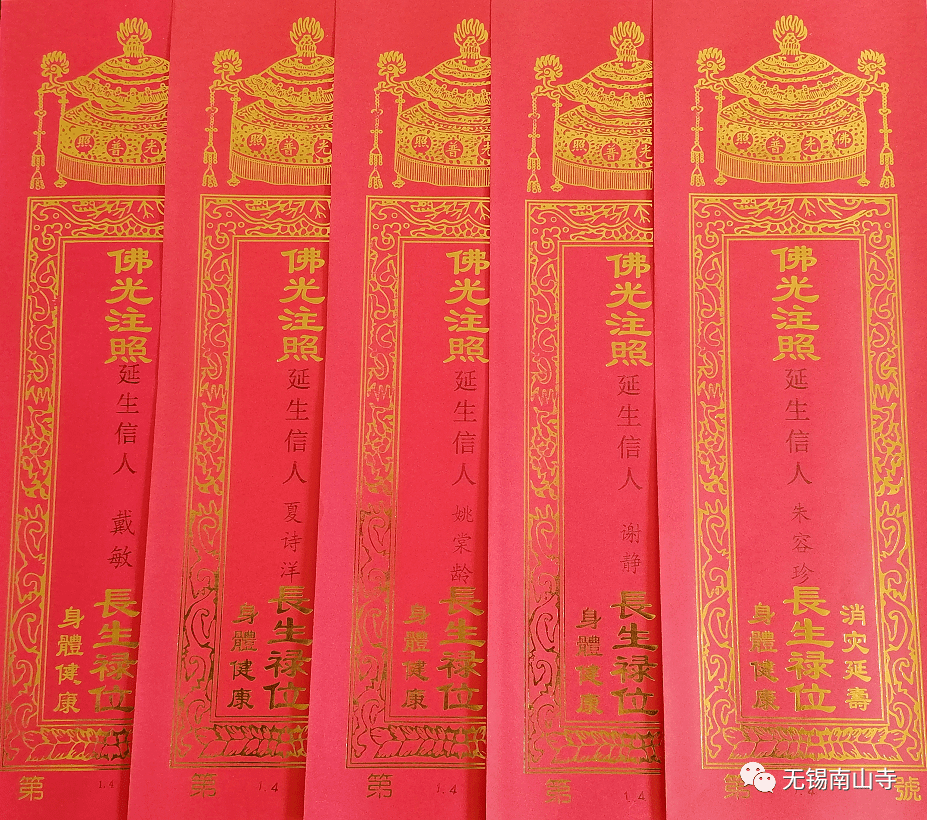 照普光
佛光注照
延生信人 戴敏
長生禄位
身體健康
第
1.4
照普光
佛光注照
延生信人 夏诗洋
長生禄位
身體健康
第
1.4
照普光
佛光注照
延生信人 姚棠龄
長生禄位
身體健康
第
1.4
照普光
佛光注照
延生信人 谢静
長生禄位
身體健康
第
1.4
照普光佛
消灾延壽
佛光注照
延生信人 朱容珍
長生禄位
身體健康
第 號
无锡南山寺